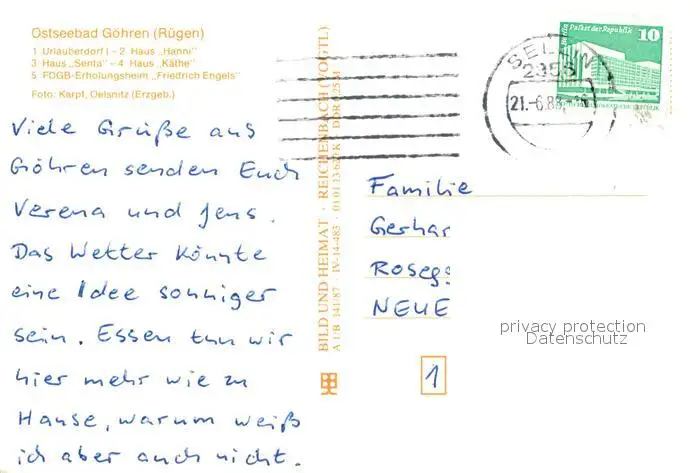 Ostseebad Göhren (Rügen)
1 Urlauberdorf I – 2 Haus „Hanni“
3 Haus „Senta“ – 4 Haus „Käthe“
5 FDGB-Erholungsheim „Friedrich Engels“
Foto: Karpf, Oelsnitz (Erzgeb.)
Viele Grüße aus
Göhren senden Euch
Verena und Jens.
Das Wetter könnte
eine Idee sonniger
sein. Essen tun wir
hier mehr wie zu
Hause, warum weiß
ich aber auch nicht.
BILD UND HEIMAT · REICHENBACH (VOGTL)
A 1/B 141/87 IV-14-483
Palast der Republik 10
21.-6.88
Familie
Gerhar
Roseg
NEUE
1
privacy protection
Datenschutz